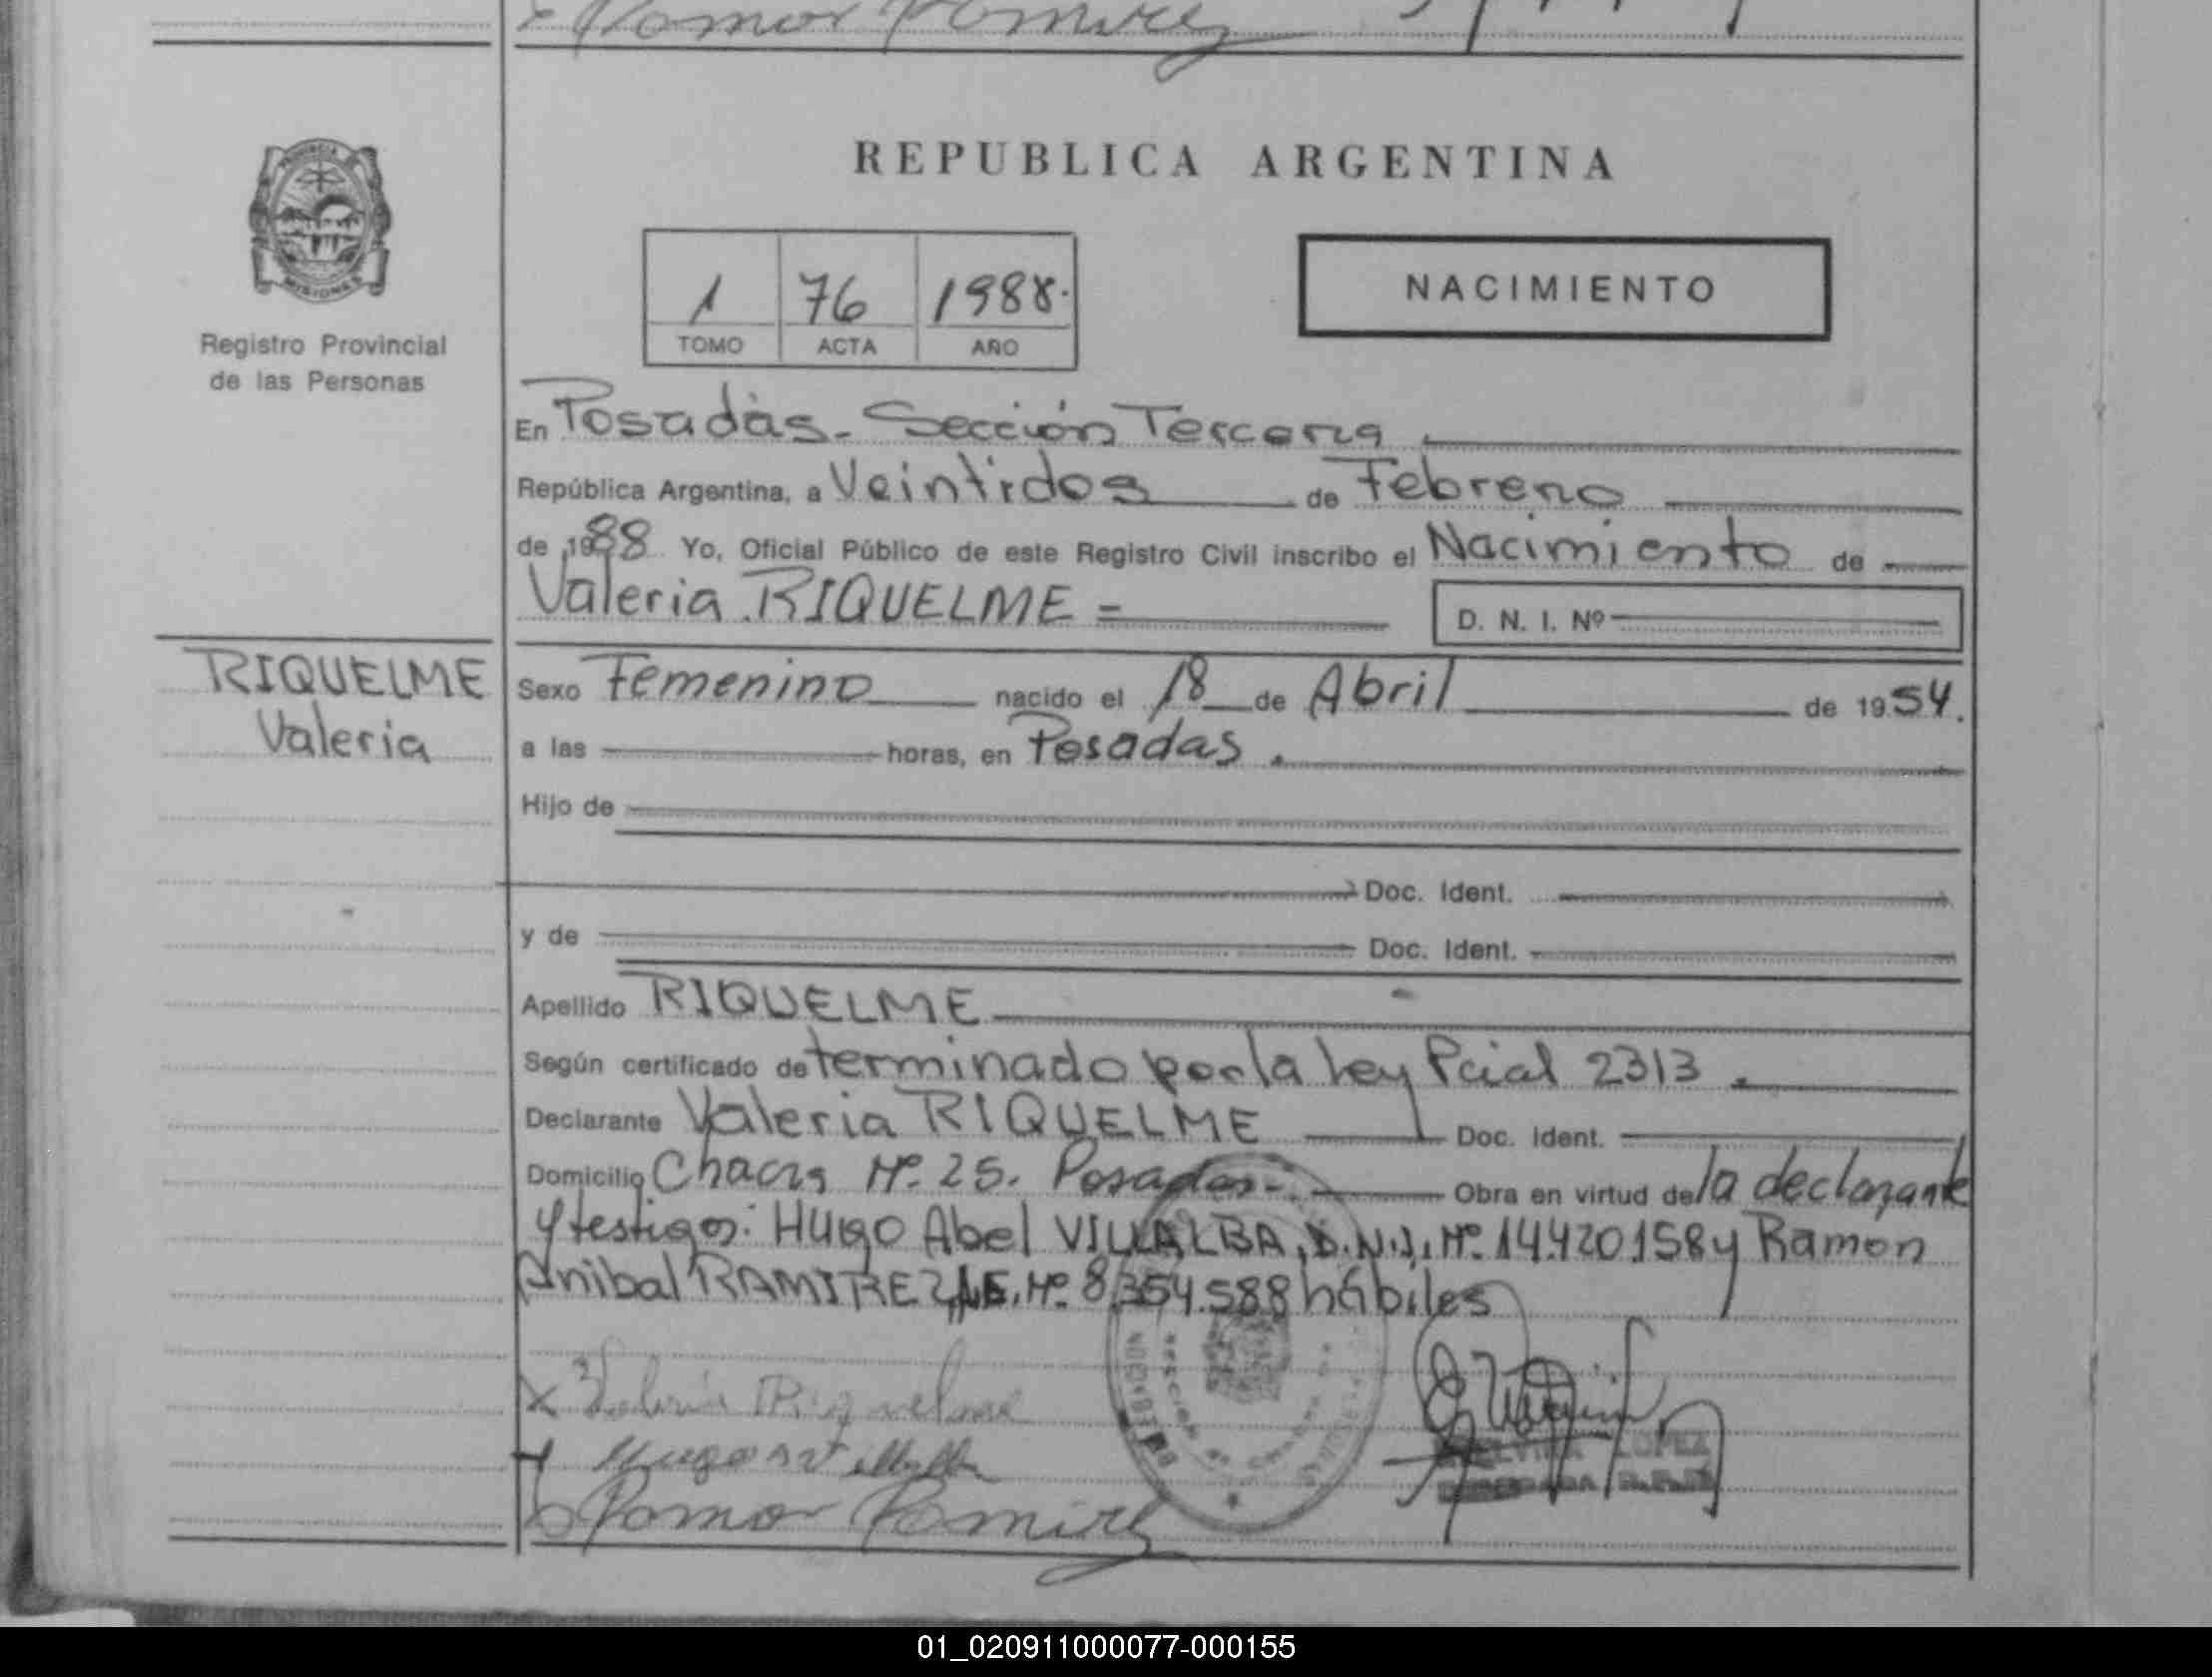 Ramon Ramirez
PROVINCIA
MISIONES
Registro Provincial
de las Personas
REPUBLICA ARGENTINA
1 76 1988.
TOMO ACTA AÑO
NACIMIENTO
En Posadas. Sección Tercera
República Argentina, a Veintidos de Febrero
de 1988 Yo, Oficial Público de este Registro Civil inscribo el Nacimiento de
Valeria RIQUELME =
D. N. I. Nº
RIQUELME
Valeria
Sexo Femenino nacido el 18 de Abril de 1954.
a las horas, en Posadas.
Hijo de
Doc. Ident.
y de Doc. Ident.
Apellido RIQUELME
Según certificado determinado por la Ley Pcial 2313.
Declarante Valeria RIQUELME Doc. Ident.
Domicilio Chacra Nº. 25. Posadas. Obra en virtud de la declarante
y testigos: Hugo Abel VILLALBA, D.N.I. Nº. 14.420158 y Ramon
Anibal RAMIREZ, L.E. Nº. 8.354.588 hábiles
x Valeria Riquelme
Hugo Villalba
Ramon Ramirez
LOPEZ
01_020911000077-000155